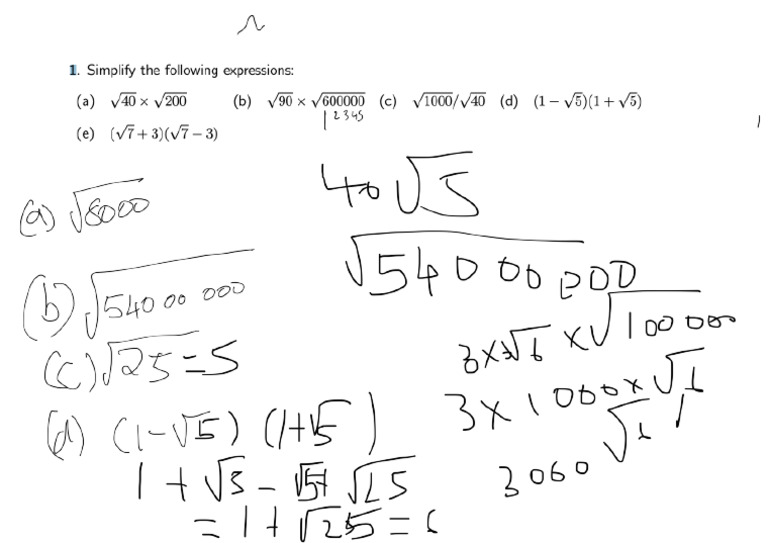 1. Simplify the following expressions:
(a) √40 × √200 (b) √90 × √600000 (c) √1000/√40 (d) (1 − √5)(1 + √5)
12345
(e) (√7 + 3)(√7 − 3)
40√5
(a) √8000
√54000000
(b) √54000000
3×√6 ×√1000000
(c) √25 = 5
3×1000×√6
(d) (1−√5) (1+√5)
3000 √6
1 + √5 − √5 + √25
= 1 + √25 = 6